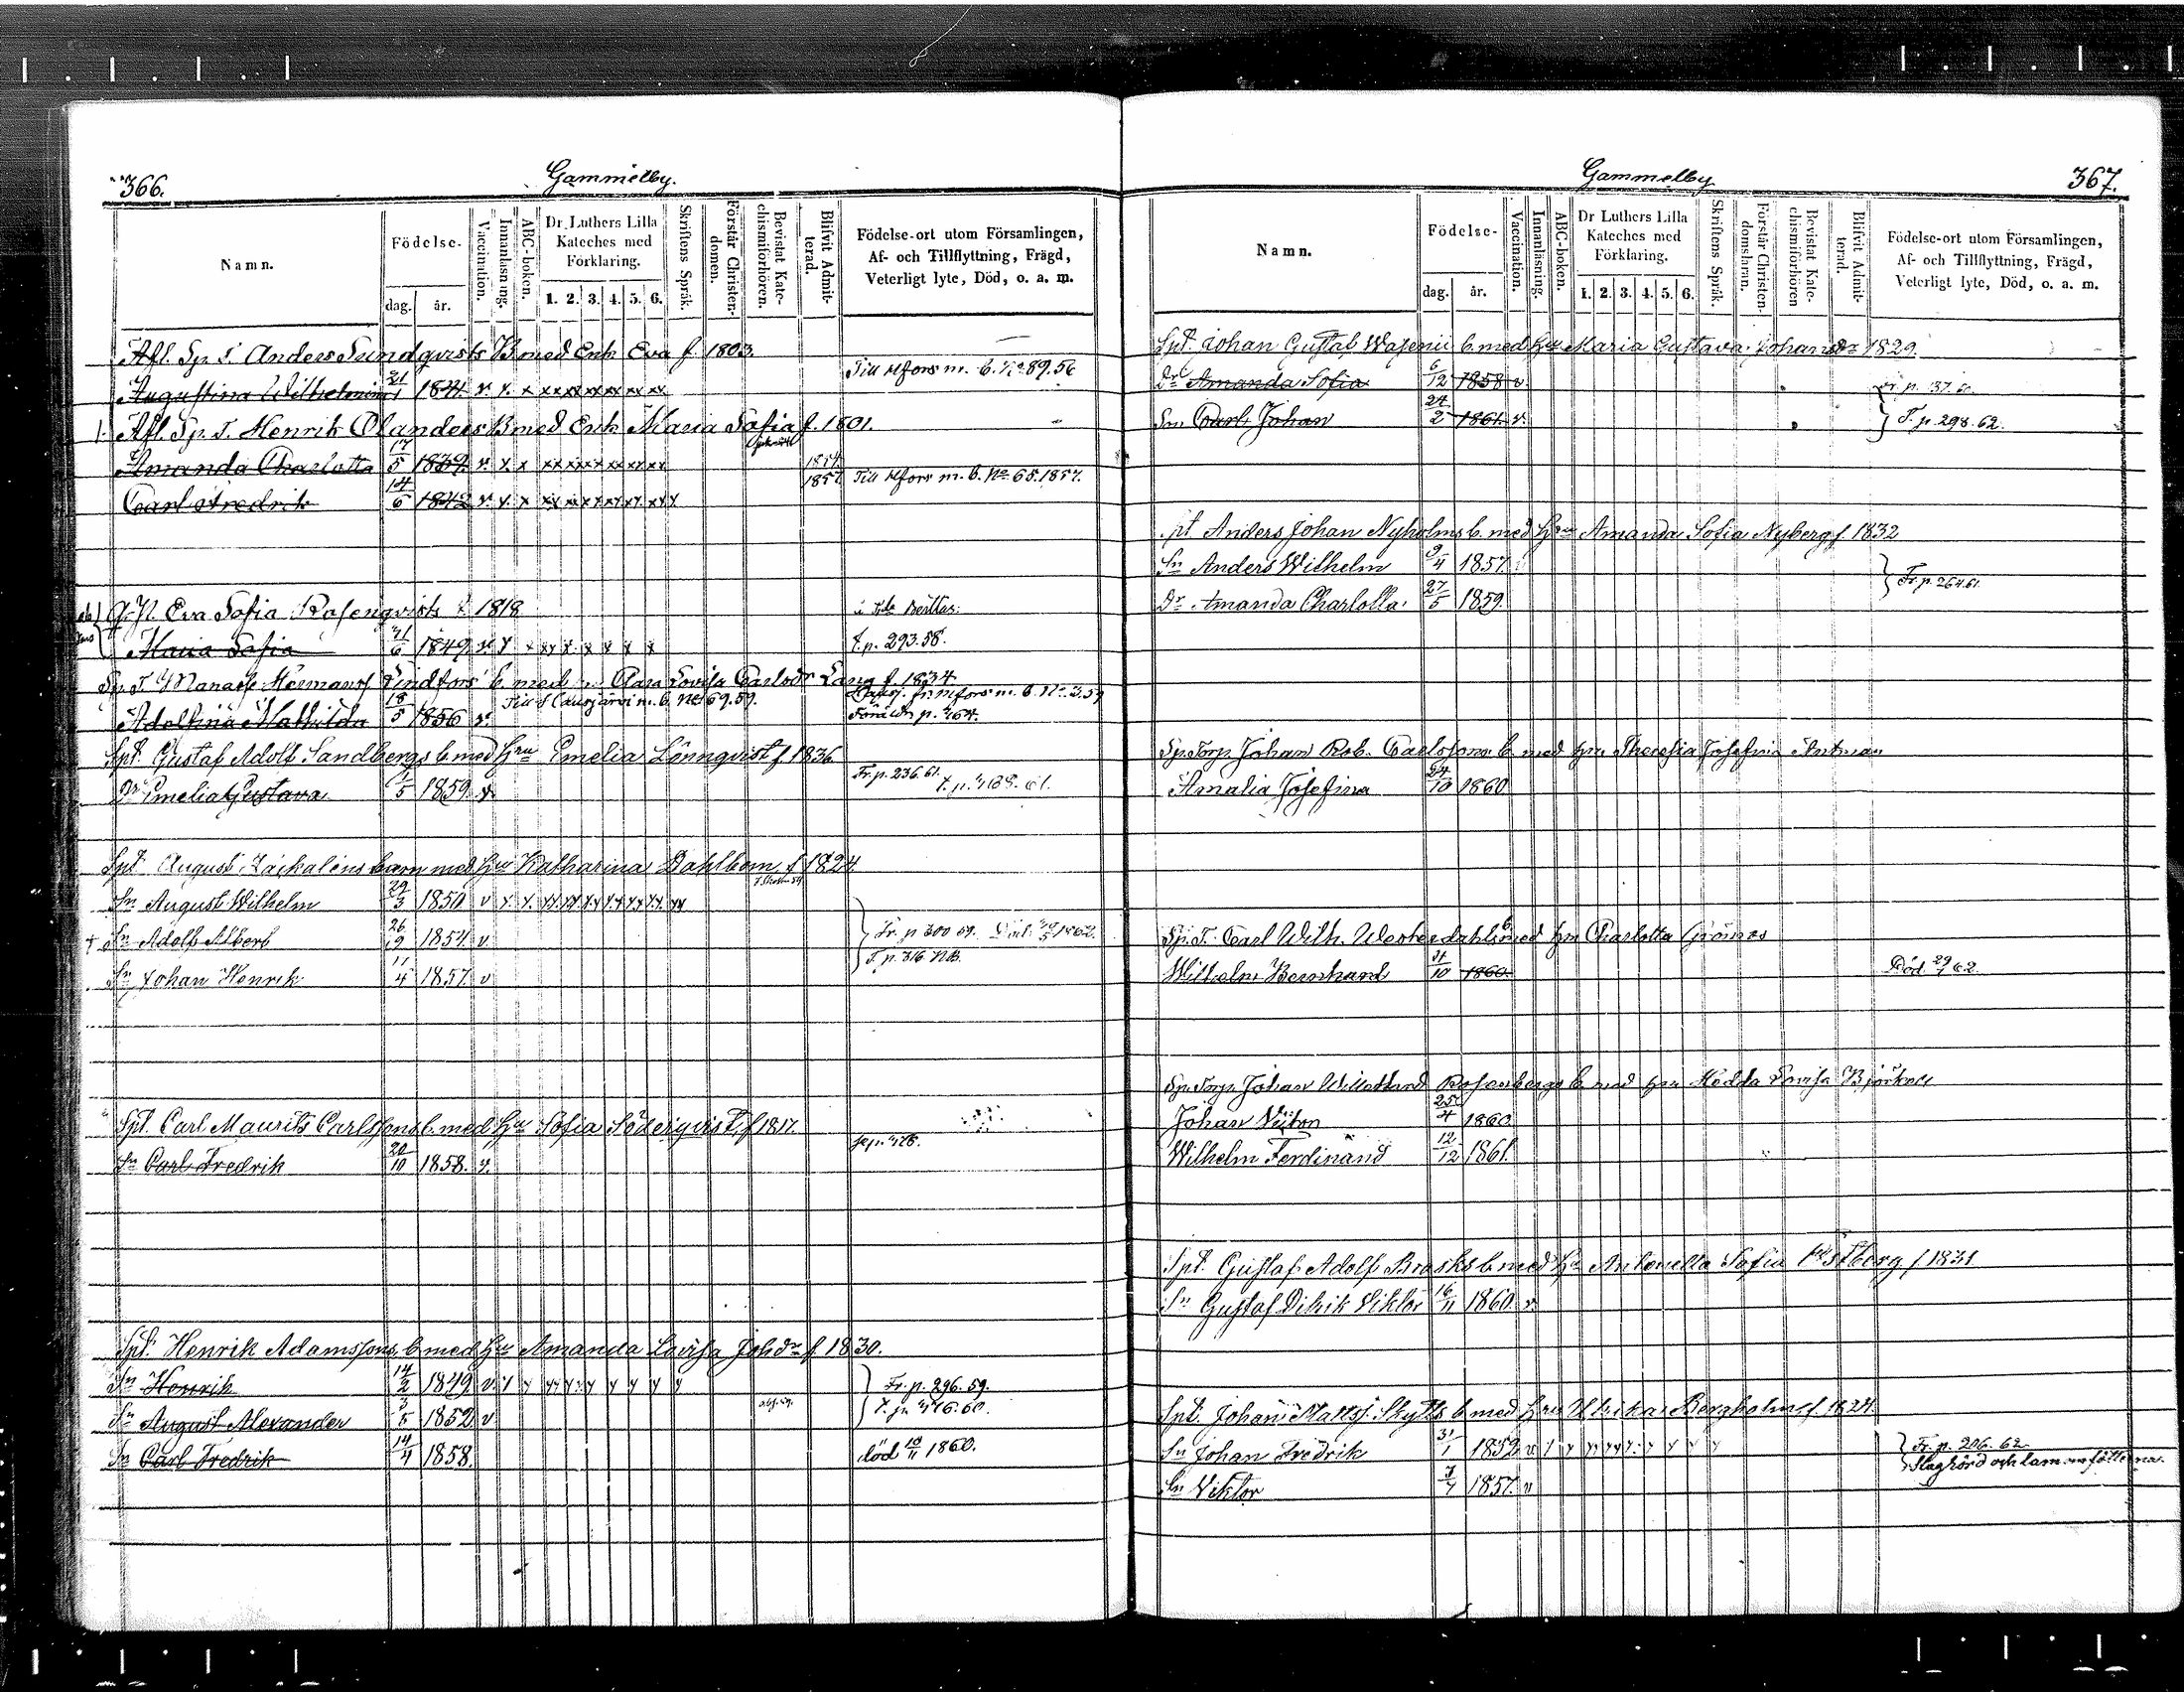 366.
Gammelby.
Namn.
Födelse-
dag. år.
Vaccination.
Innanläsning.
ABC-boken.
Dr Luthers Lilla Kateches med Förklaring.
1. 2. 3. 4. 5. 6.
Skriftens Språk.
Förstår Christendomen.
Bevistat Katechismiförhören.
Blifvit Admitterad.
Födelse-ort utom Församlingen, Af- och Tillflyttning, Frägd, Veterligt lyte, Död, o. a. m.
Afl. Sp. T. Anders Sundqvists B med Enk Eva f. 1803.
Augustina Wilhelmina 21/1 1841. v. x. x xx xx xx xx xx xx Till Hfors m. b. No 89.56
Afl. Sp. T. Henrik Olanders B med Enk Maria Sofia f. 1801.
Amanda Charlotta 17/5 1839. v. x. x xx xx xx xx xx xx 1854.
Carl Fredrik 14/6 1842 v. x. x xx xx xx xx xx xx x 1857. Till Hfors m. b. No 65.1857.
Eva Sofia Rosenqvists f. 1818
Maria Sofia 21/6 1849 v. x x xx x. x x x x t. p. 293.58.
Sp. T. Manasse Hermanss Lindfors b. med Clara Lovisa Carlsdr Lang f. 1834
Adolfina Mathilda 18/5 1856 v. m. b. No 69.59.
Spt. Gustaf Adolf Sandbergs b. med Hru Emelia Lönnqvist f. 1836
Dr Emelia Gustava 1/5 1859. v. Fr. p. 236.61.
Spt. August Zackaléns barn med Hru Katharina Dahlbom f. 1824.
Sn August Wilhelm 29/3 1850 v x. x. xx. xx x.x x.x xx x.x. xx
† Sn Adolf Albert 26/9 1854. v. Fr. p 300 59.
Sn Johan Henrik 11/4 1857. v T. p. 316 NB.
Spt. Carl Maurits Carlssons b. med Hru Sofia Söderqvist f 1817.
Sn Carl Fredrik 20/10 1858. v.
Spt. Henrik Adamssons b med Hru Amanda Lovisa Johdr f 1830.
Sn Henrik 14/2 1849 v. x x xx x x x x x x x Fr. p. 296. 59.
Sn August Alexander 3/5 1852 v
Sn Carl Fredrik 14/4 1858. död 10/11 1860.
Gammelby
367.
Namn.
Födelse-
dag. år.
Vaccination.
Innanläsning.
ABC-boken.
Dr Luthers Lilla Kateches med Förklaring.
1. 2. 3. 4. 5. 6.
Skriftens Språk.
Förstår Christendomsläran.
Bevistat Katechismiförhören
Blifvit Admitterad.
Födelse-ort utom Församlingen, Af- och Tillflyttning, Frägd, Veterligt lyte, Död, o. a. m.
Spt. Johan Gustaf Wasenii b. med Hru Maria Gustava Johansdr 1829.
Dr Amanda Sofia 6/12 1858 v.
Son Carl Johan 24/2 1861. v. T. p. 298. 62.
Spt Anders Johan Nyholms b. med Hru Amanda Sofia Nyberg f. 1832
Sn Anders Wilhelm 9/4 1857.
Dr Amanda Charlotta 27/5 1859. Fr. p. 264.61.
Sp. Torp. Johan Rob. Carlssons b med hru Theresia Josefina Antman
Amalia Josefina 24/10 1860
Sp. T. Carl Wilh. Westerdahls b med hru Charlotta Grönros
Wilhelm Bernhard 4/10 1860. Död 29/1 62.
Sp. Torp. Johan Rosenbergs b. med hru Hedda Lovisa Björkell
Johan 25/4 1860
Wilhelm Ferdinand 12/12 1861.
Spt. Gustaf Adolf Brasks b. med Hru Antonetta Sofia Östberg f 1831
Sn Gustaf Viktor 16/11 1860. v.
Spt. Johan Matts. Skytts b med hru Ulrika Bergholm f. 1824.
Sn Johan Fredrik 31/1 1852 v Fr. p. 206. 62.
Sn Viktor 7/7 1857. v